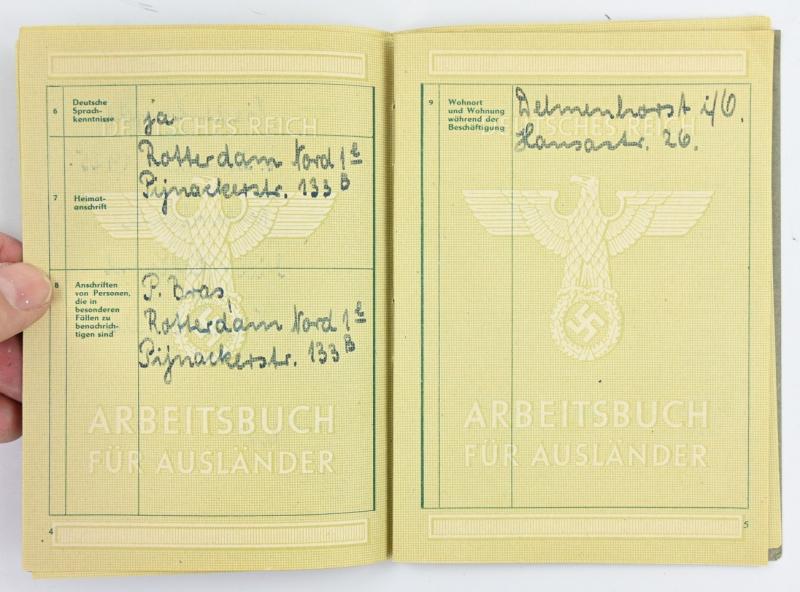 6 Deutsche
Sprach-
kenntnisse
ja
DEUTSCHES REICH
7 Heimat-
anschrift
Rotterdam Nord 1e
Pijnackerstr. 133B
8 Anschriften
von Personen,
die in
besonderen
Fällen zu
benachrich-
tigen sind
P. Bras,
Rotterdam Nord 1e
Pijnackerstr. 133B
ARBEITSBUCH
FÜR AUSLÄNDER
4
9 Wohnort
und Wohnung
während der
Beschäftigung
Delmenhorst i/O.
Hansastr. 26.
DEUTSCHES REICH
ARBEITSBUCH
FÜR AUSLÄNDER
5